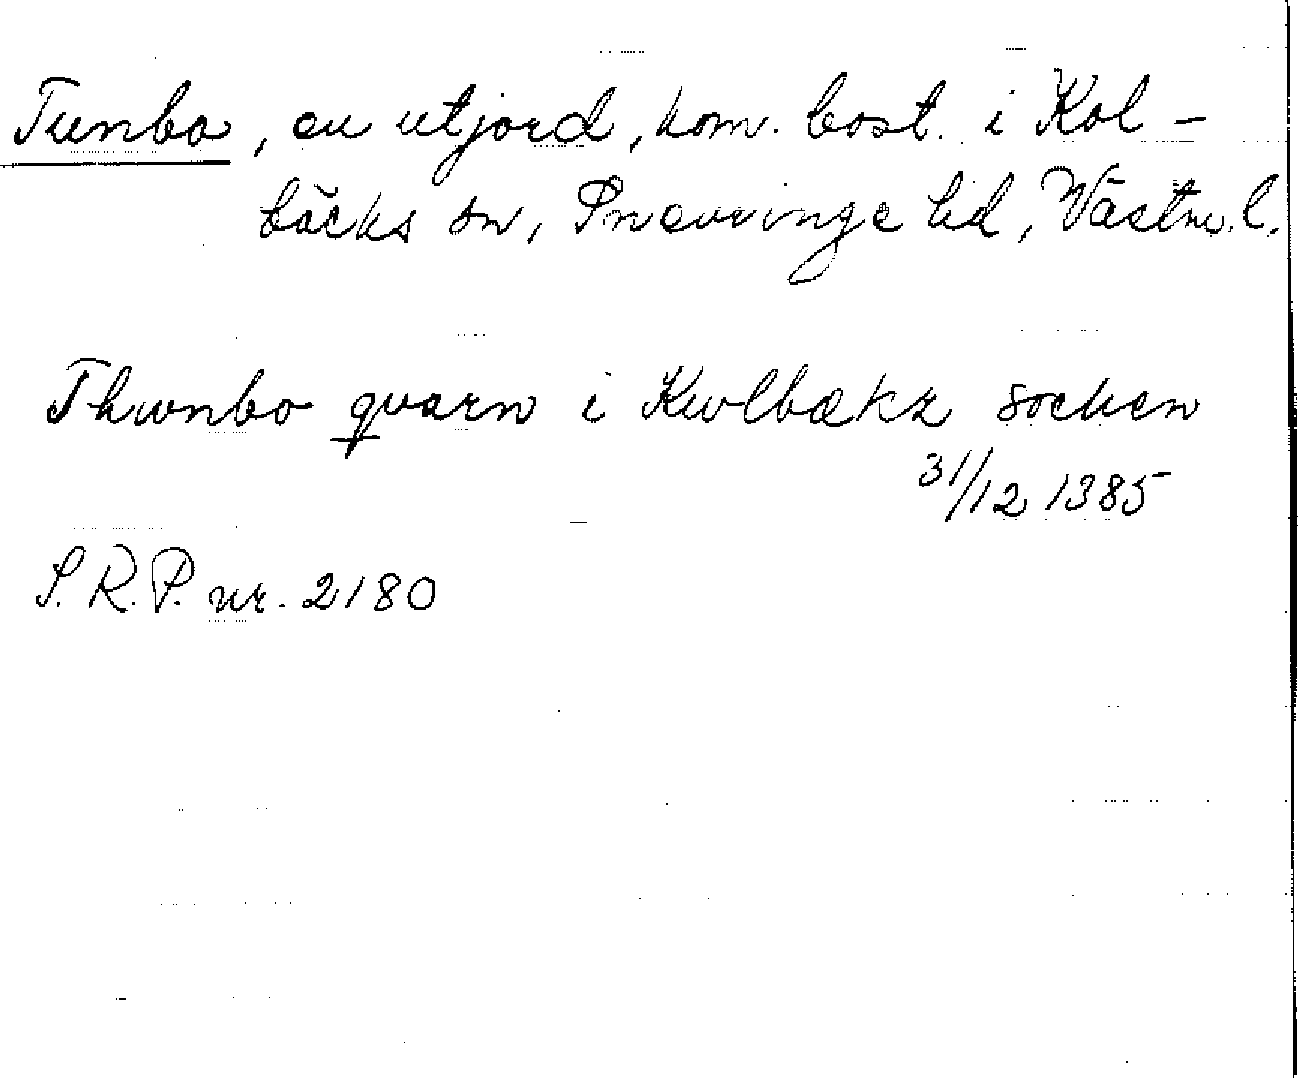 Tunbo, en utjord, kom. bost. i Kol-
bäcks sn, Snevringe hd, Västm. l.
Thunbo qvarn i Kwlbækz socken
31/12 1385
S.R.P. nr. 2180